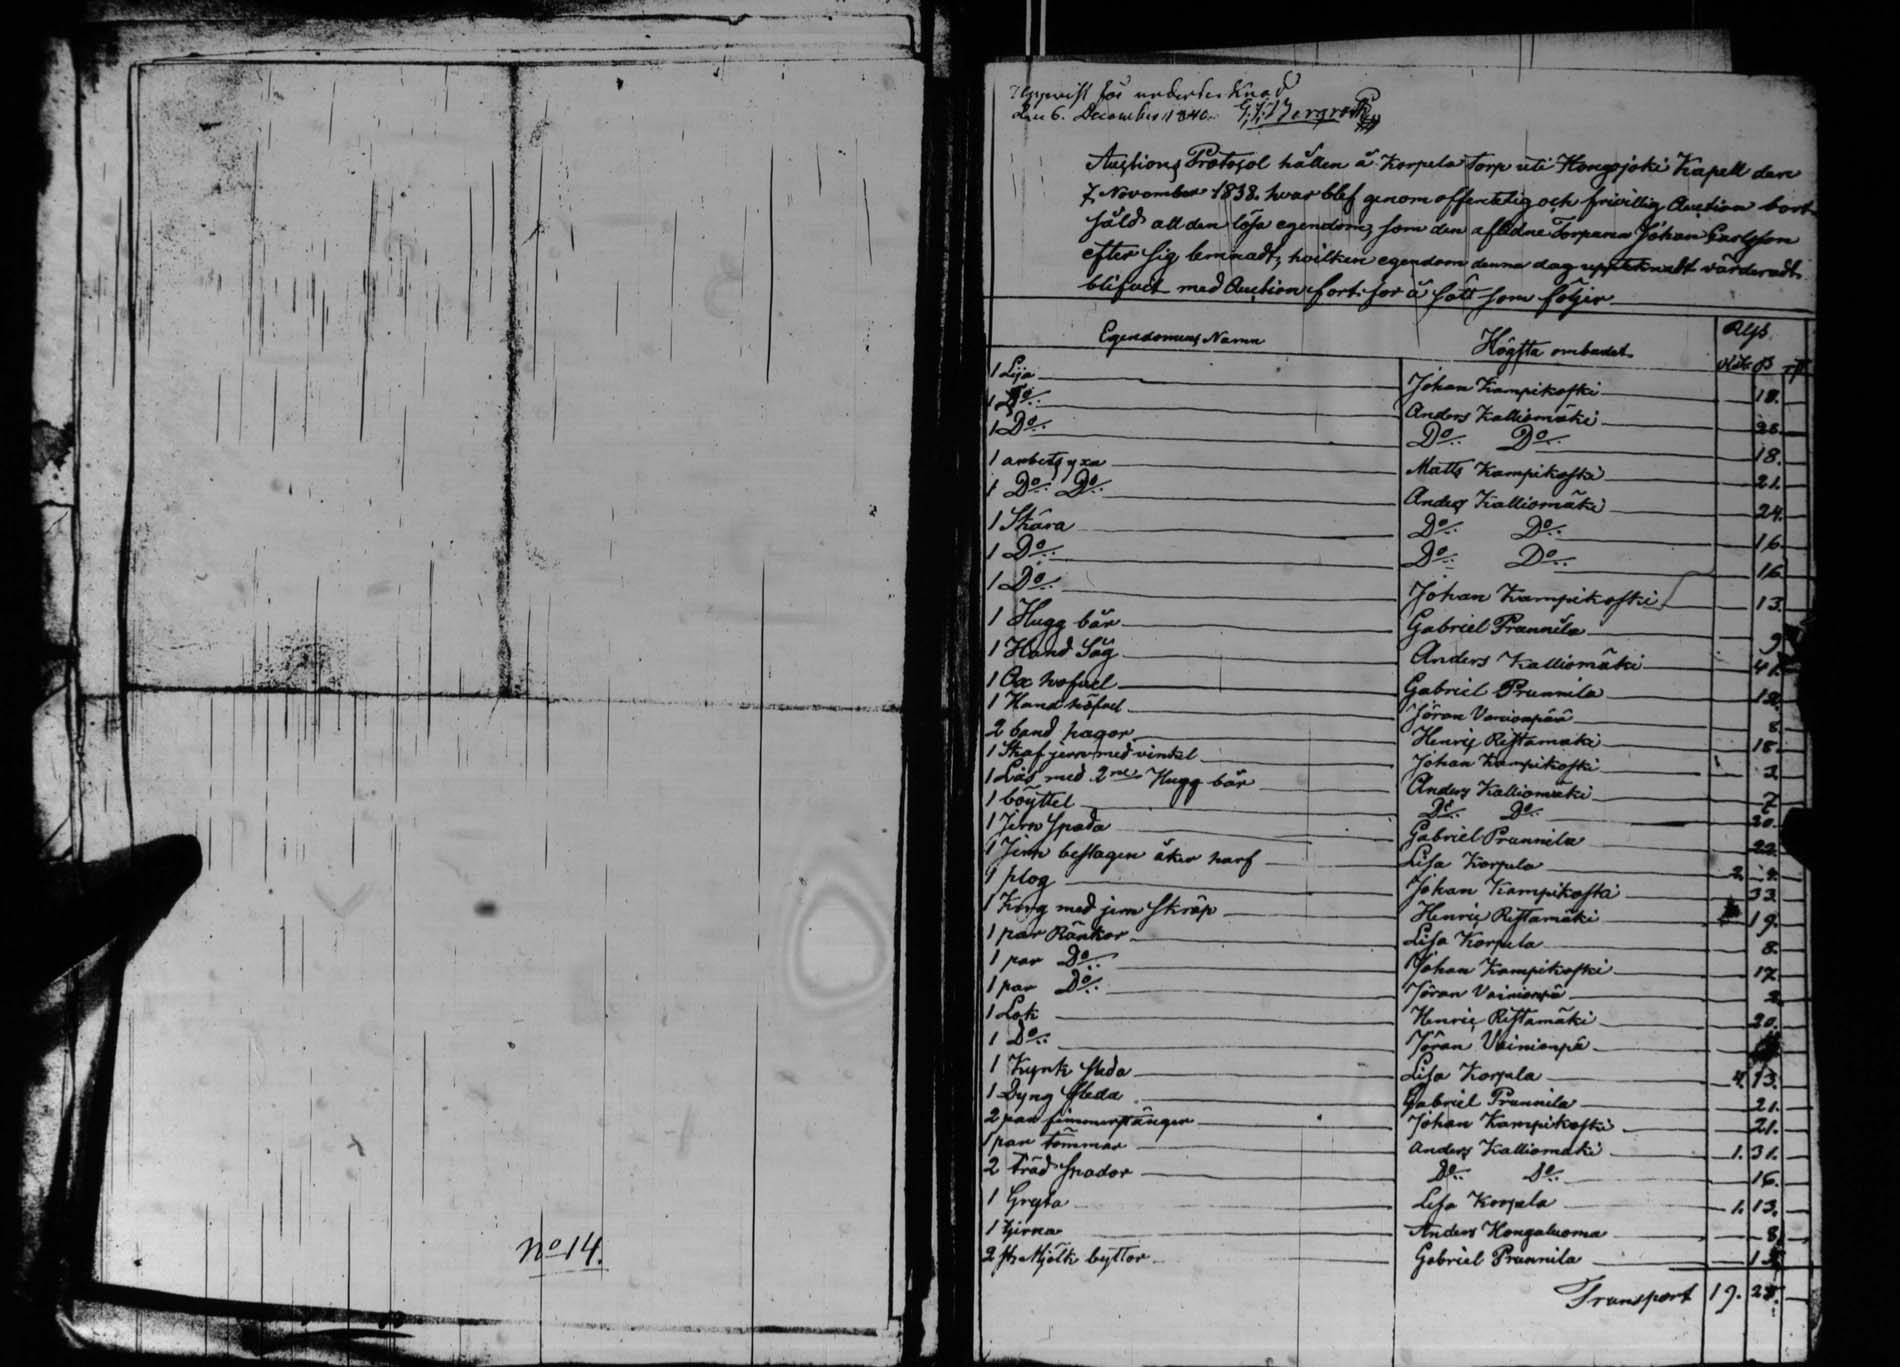 No 14.
Uppvist för undertecknad
den 6. December 1840.
Auctions Protocol hållen å Korpela Torp uti Kongojoki Kapell den
7 November 1838. hvar blef genom offentelig och frivillig Auction bort
såld all den lösa egendom, som den aflidne Torparen Johan Carlsson
efter sig lemnadt, hvilken egendom denna dag uppteknadt värderadt
blifvet med Auction fort for å sätt som följer
Egendomens Namn Högsta ombudet
1 Lija Johan Kampikoski 18.
1 Do Anders Kalliomäki
1 Do Do Do 18.
1 arbets yxa Matts Kampikoski 21.
1 Do Do Anders Kalliomäki 24.
1 Skära Do Do 16.
1 Do Do Do 16.
1 Do Johan Kampikoski 13.
1 Hugg bår Gabriel Prunnila 9
1 Hand Såg Anders Kalliomäki 41.
1 Ox hofvel Gabriel Prunnila
1 Hand höfvel Jöran Vainionpää 8.
2 band hagor Henric Ristamäki 18.
1 Skaf jern med vinkel Johan Kampikoski 2
1 Lås med 2ne Hugg bår Anders Kalliomäki 7
1 böyttel Do Do 20.
1 Jern Spada Gabriel Prunnila 22.
1 Jern beslagen åker harf Lisa Korpela 2.
1 plog Johan Kampikoski 33.
1 Korg med jern Skräp Henric Ristamäki 19.
1 par Ränkor Lisa Korpela 8.
1 par Do Johan Kampikoski 17.
1 par Do Jöran Vainionpä 2
1 Lok Henric Ristamäki 20.
1 Do Jöran Vainionpä
1 Kynk släda Lisa Korpela 4. 13.
1 Dyng släda Gabriel Prunnila 21.
2 par timmerstänger Johan Kampikoski 21.
1 par tömmar Anders Kalliomäki 1. 31.
2 träd Spador Do Do 16.
1 Gryta Lisa Korpela 1. 13.
1 kjerna Anders Kongaluoma 8.
2 st. Mjölk byttor Gabriel Prunnila
Transport 19. 28.